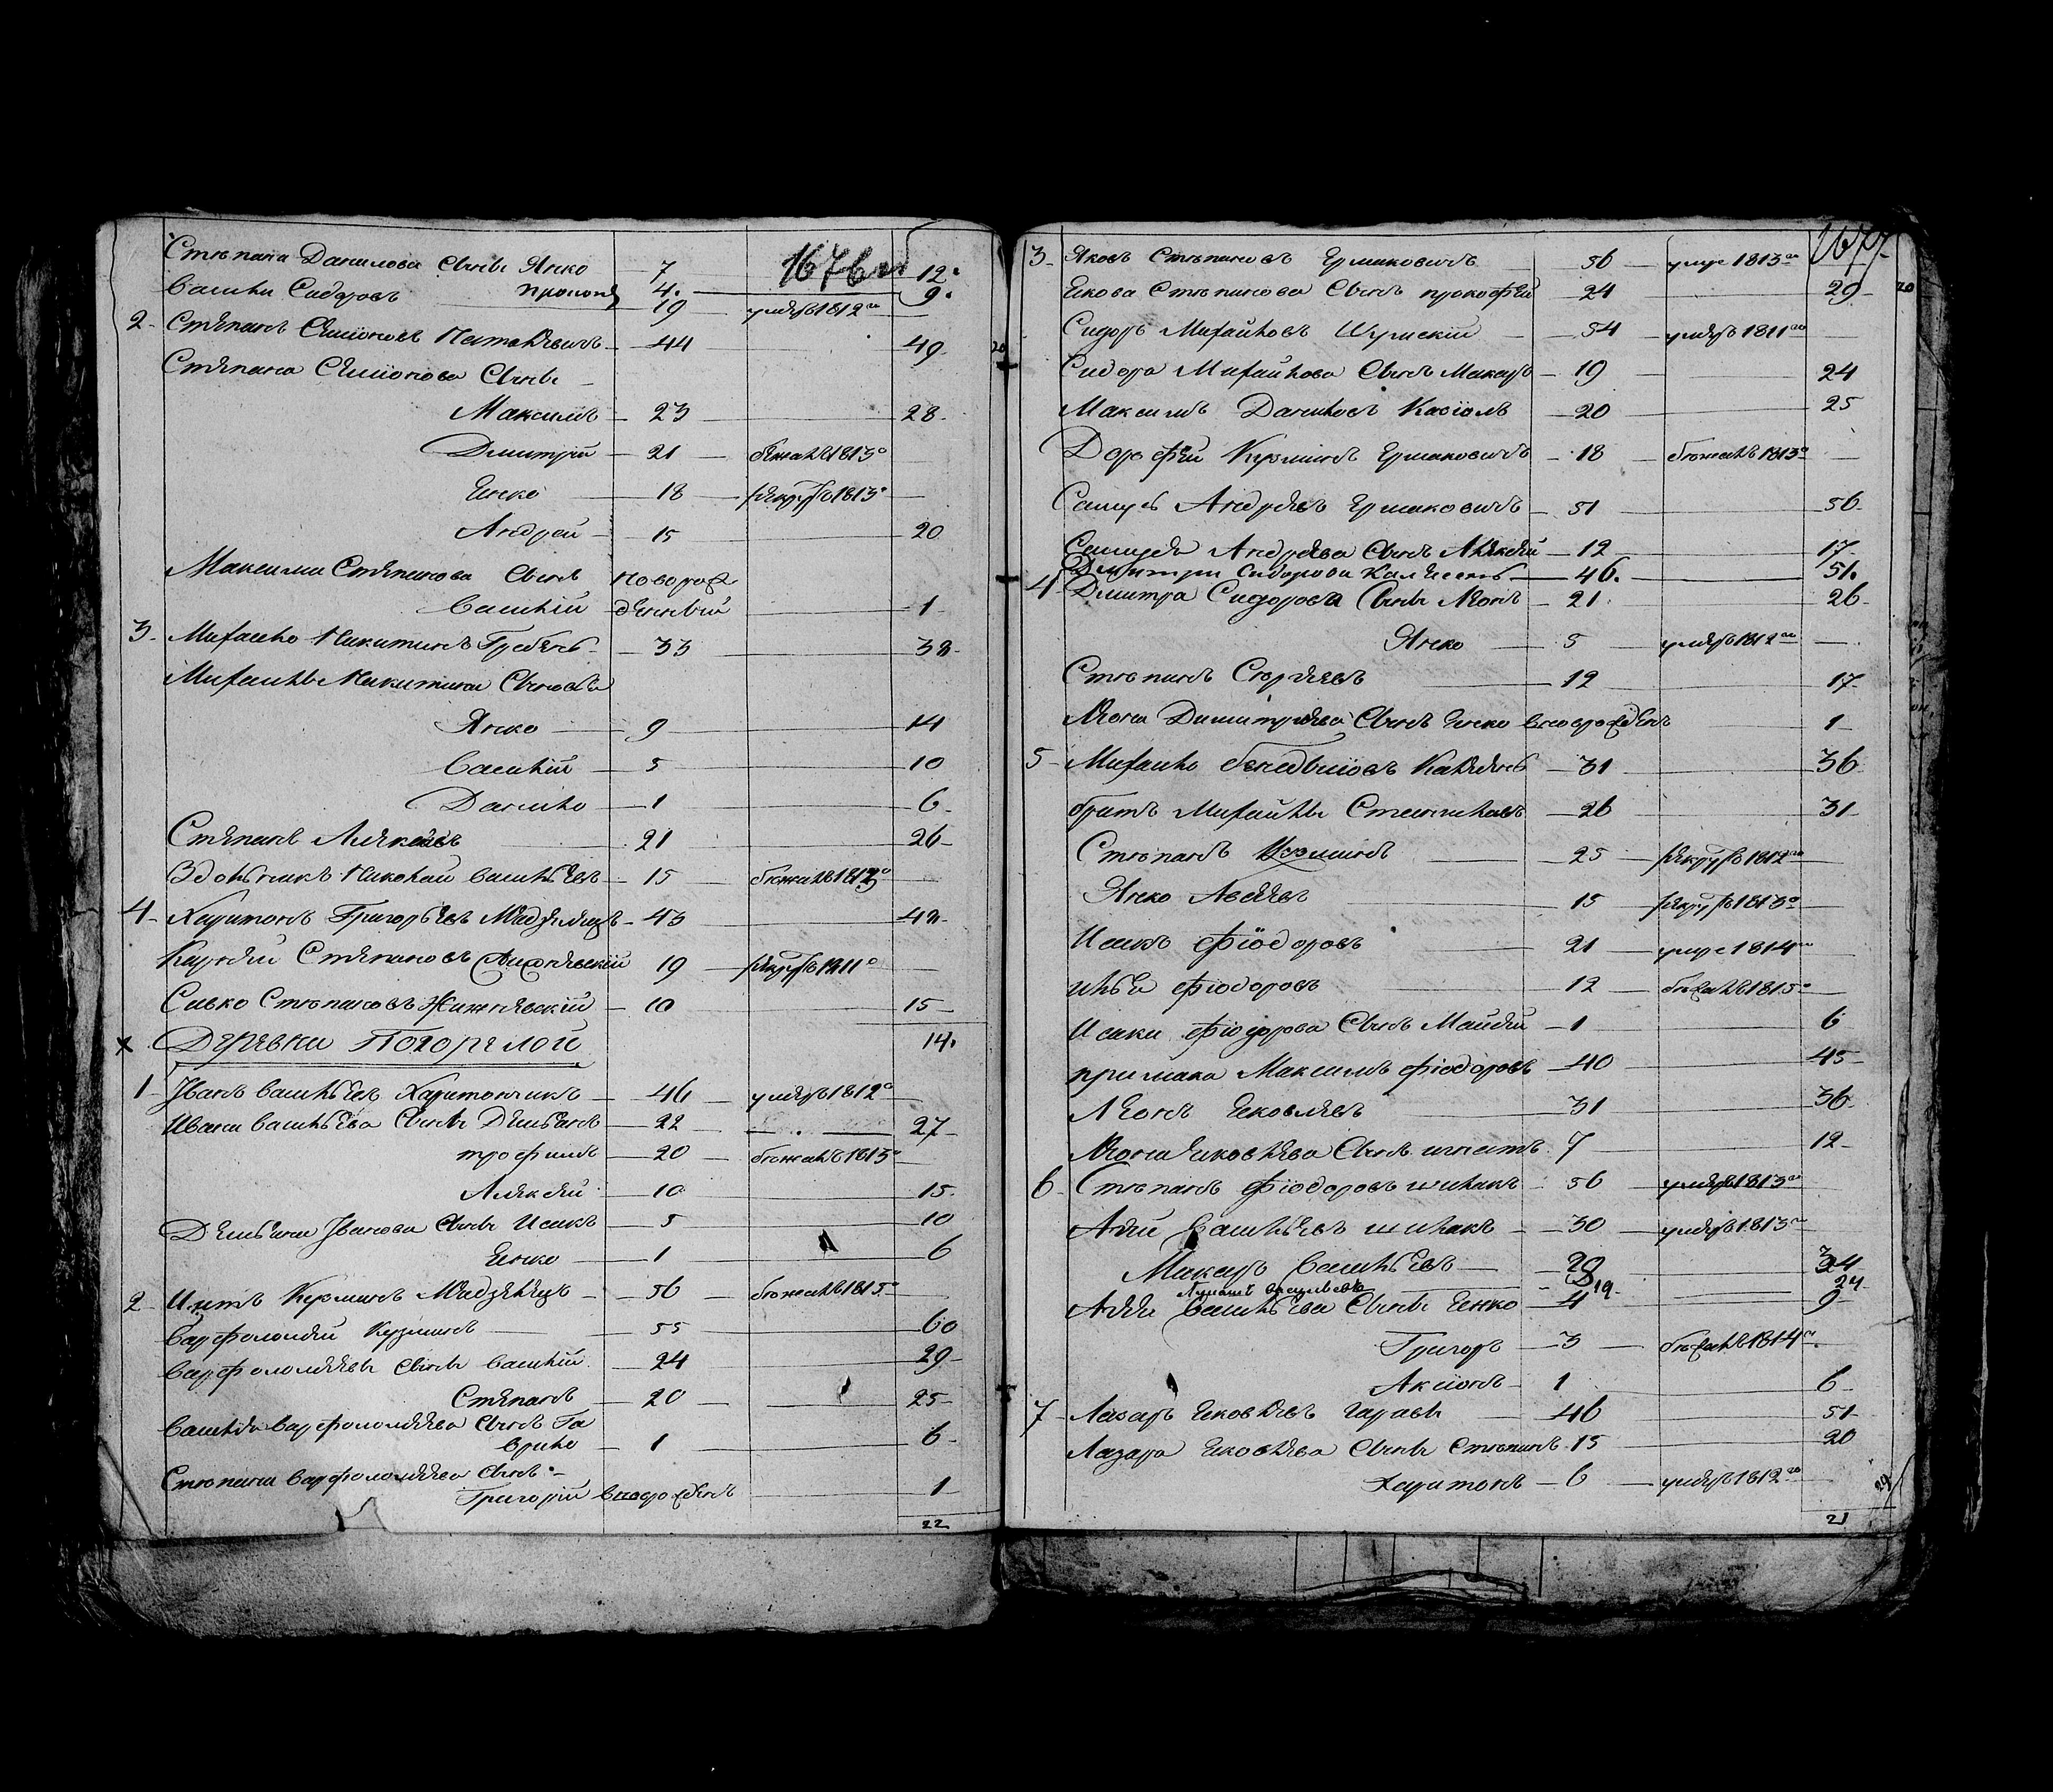 1676 об
Степана Данилова Сынъ Янко 7 12.
Прокопъ 4. 9.
Василь Сидоровъ 19 умеръ 1812го
2 Степанъ Семіоновъ 44 49
Степана Семіонова Сыны
Максимъ 23 28
Дмитрій 21 бежалъ 1813о
Енко 18 рекрутъ 1813о
Андрей 15 20
Максима Степанова Сынъ новорож
Василій денный 1
3 Михайло Никитинъ Гребень 33 38
Михайлы Никитина Сыновья
Янко 9 14
Василій 5 10
Данило 1 6
Степанъ Алексеевъ 21 26
Николай Васильевъ 15 бежалъ 1813о
4 Харитонъ Григорьевъ 43 48
Степановъ 19 рекрутъ 1811о
Савко Степановъ 10 15
х Деревни Погорелой 14.
1 Іванъ Васильевъ Харитончикъ 46 умеръ 1812о
Ивана Васильева Сыны Демьянъ 22 27
трофимъ 20 бежалъ 1813о
Алексей 10 15
Демьяна Іванова Сыны Исакъ 5 10
Енко 1 6
2 Кузминъ 56 бежалъ 1815о
Варфоломей Кузминъ 55 60
Варфоломеевы Сыны Василій 24 29
Степанъ 20 25
Василья Варфоломеева Сынъ Га
врило 1 6
Степана Варфоломеева Сынъ
Григорій вноворожденъ 1
22
1677
3 Яковъ Степановъ Ермаковичъ 56 умре 1813го
Якова Степанова Сынъ прокофей 24 29
Сидоръ Михайловъ Шумскій 54 умеръ 1811го
Сидора Михайлова Сынъ Макаръ 19 24
Максимъ Даниловъ Козіолъ 20 25
Дорофей Кузминъ Ермаковичъ 18 бежалъ 1813о
Самуль Андреевъ Ермаковичъ 51 56
Самуля Андреева Сынъ Алексей 12 17
Дмитри Сидорова 46. 51.
4 Дмитра Сидорова Сыны Леонъ 21 26
Янко 5 умеръ 1812го
Степанъ Сергеевъ 12 17
Леона Димитриева Сынъ Енко вноворожденъ 1
5 Михайло 31 36
братъ Михайлы Станиславъ 26 31
Степанъ Кузминъ 25 рекрутъ 1812го
Янко Авдеевъ 15 рекрутъ 1813о
Исакъ Фіодоровъ 21 умре 1814го
илья Фіодоровъ 12 бежалъ 1815о
Исака Фіодорова Сынъ 1 6
примака Максимъ фіодоровъ 40 45
Леонъ Яковлевъ 31 36
Леона Яковлева Сынъ игнатъ 7 12
6 Степанъ Фіодоровъ шишакъ 56 умеръ 1813го
Авдей Васильевъ шишакъ 30 умеръ 1813го
Макаръ Васильевъ 29 34
Васильевъ 19. 24
Авдея Васильева Сыны Енко 4 9
Григоръ 3 бежалъ 1814го
Аксіонъ 1 6
7 Лазаръ Яковлевъ 46 51
Лазара Яковлева Сыны Степанъ 15 20
Харитонъ 6 умеръ 1812го
21